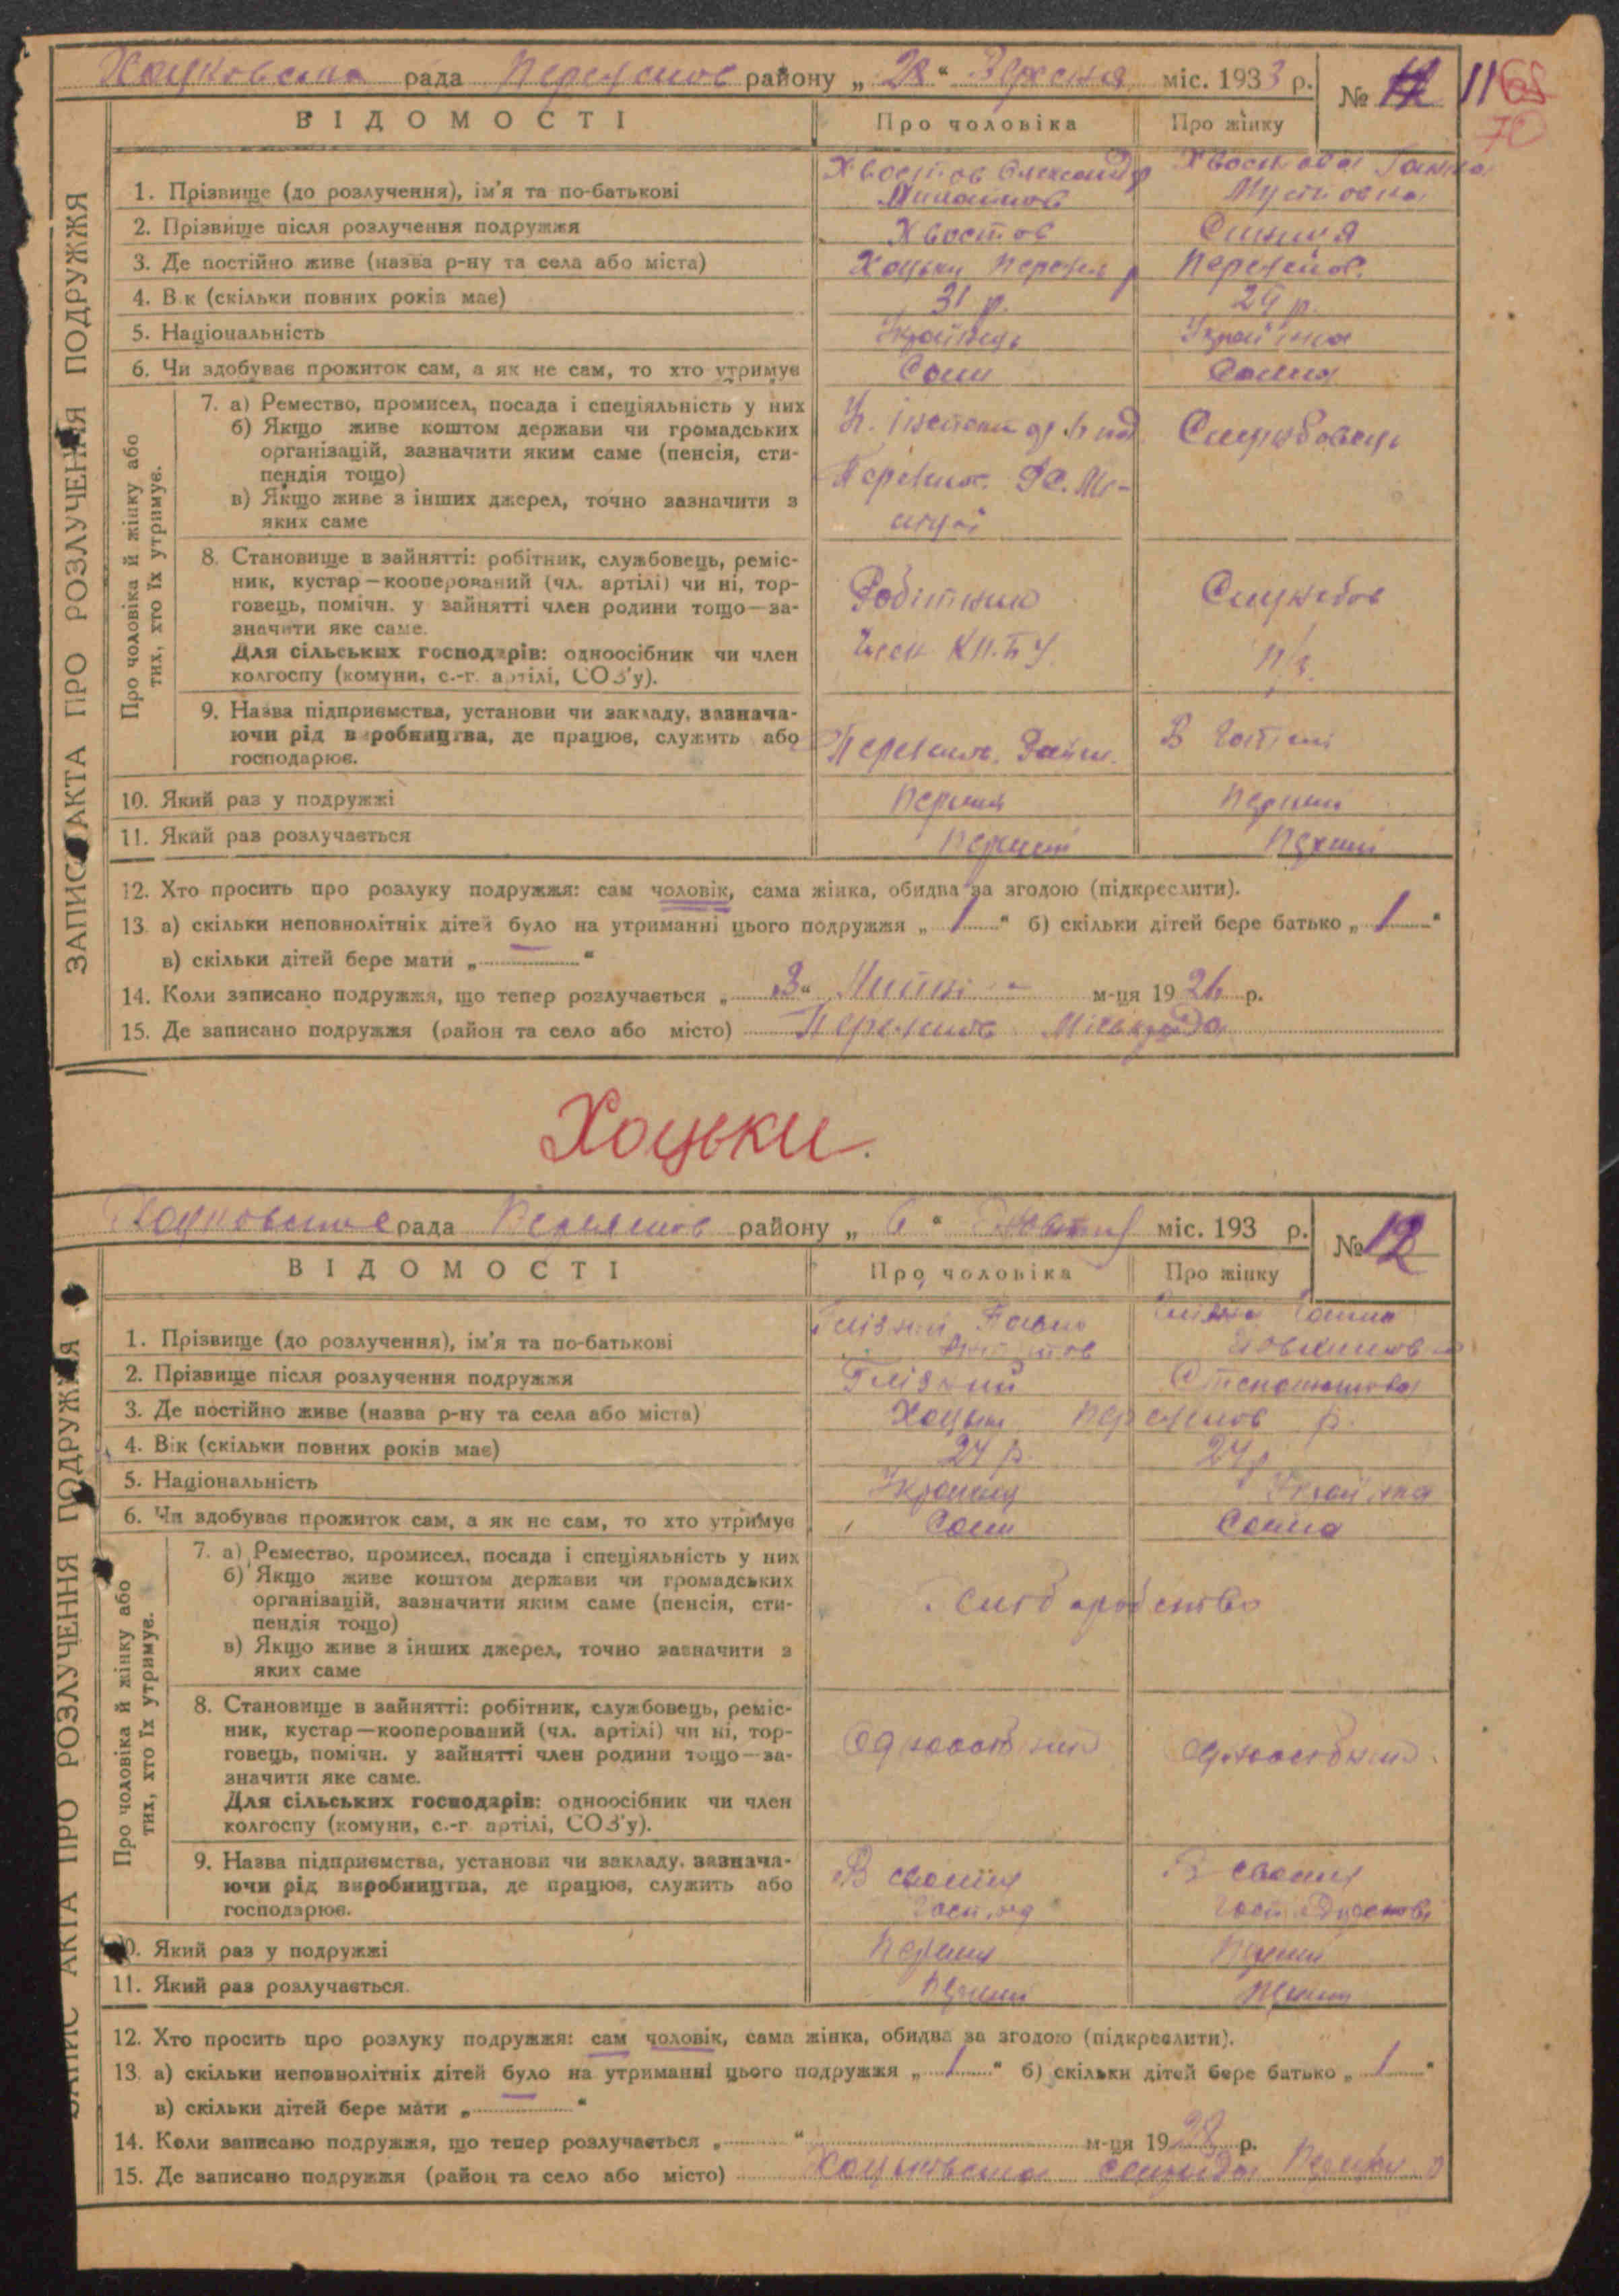 Хоцковська рада Переяслов району „ 28 “ Вересня міс. 1933 р.
№ 11
68
70
ВІДОМОСТІ
Про чоловіка
Про жінку
ЗАПИС АКТА ПРО РОЗЛУЧЕННЯ ПОДРУЖЖЯ
1. Прізвище (до розлучення), ім'я та по-батькові
Хвостов Олександр
Хвостова Ганна
2. Прізвище після розлучення подружжя
Хвостов
3. Де постійно живе (назва р-ну та села або міста)
Хоцьки Переясл р
Переяслов.
4. Вік (скільки повних років має)
31 р.
29 р.
5. Національність
Українець
Українка
6. Чи здобуває прожиток сам, а як не сам, то хто утримує
Сам
Сама
Про чоловіка й жінку або
тих, хто їх утримує.
7. а) Ремество, промисел, посада і спеціяльність у них
б) Якщо живе коштом держави чи громадських
організацій, зазначити яким саме (пенсія, сти-
пендія тощо)
в) Якщо живе з інших джерел, точно зазначити з
яких саме
Службовець
8. Становище в зайнятті: робітник, службовець, реміс-
ник, кустар—кооперований (чл. артілі) чи ні, тор-
говець, помічн. у зайнятті член родини тощо—за-
значити яке саме.
Для сільських господарів: одноосібник чи член
колгоспу (комуни, с.-г. артілі, СОЗ'у).
Робітник
Член КП.бУ.
Службов
п/з.
9. Назва підприємства, установи чи закладу, зазнача-
ючи рід виробництва, де працює, служить або
господарює.
10. Який раз у подружжі
Перший
Перший
11. Який раз розлучається
Перший
Перший
12. Хто просить про розлуку подружжя: сам чоловік, сама жінка, обидва за згодою (підкреслити).
13. а) скільки неповнолітніх дітей було на утриманні цього подружжя „ 1 “ б) скільки дітей бере батько „ 1 “
в) скільки дітей бере мати „ — “
14. Коли записано подружжя, що тепер розлучається „ 3 “ м-ця 1926 р.
15. Де записано подружжя (район та село або місто) Переяслов Міськрада
Хоцьки.
Хоцковська рада Переяслов району „ 6 “ Жовтня міс. 193 р.
№ 12
ВІДОМОСТІ
Про чоловіка
Про жінку
ЗАПИС АКТА ПРО РОЗЛУЧЕННЯ ПОДРУЖЖЯ
1. Прізвище (до розлучення), ім'я та по-батькові
Глізний Павло
2. Прізвище після розлучення подружжя
Глізний
3. Де постійно живе (назва р-ну та села або міста)
Хоцьки Переяслов р.
4. Вік (скільки повних років має)
24 р.
24 р
5. Національність
Українець
Українка
6. Чи здобуває прожиток сам, а як не сам, то хто утримує
Сам
Сама
Про чоловіка й жінку або
тих, хто їх утримує.
7. а) Ремество, промисел, посада і спеціяльність у них
б) Якщо живе коштом держави чи громадських
організацій, зазначити яким саме (пенсія, сти-
пендія тощо)
в) Якщо живе з інших джерел, точно зазначити з
яких саме
8. Становище в зайнятті: робітник, службовець, реміс-
ник, кустар—кооперований (чл. артілі) чи ні, тор-
говець, помічн. у зайнятті член родини тощо—за-
значити яке саме.
Для сільських господарів: одноосібник чи член
колгоспу (комуни, с.-г. артілі, СОЗ'у).
Одноосібник
Одноосібник
9. Назва підприємства, установи чи закладу, зазнача-
ючи рід виробництва, де працює, служить або
господарює.
В своїм
В своїм
10. Який раз у подружжі
Перший
Перший
11. Який раз розлучається.
Перший
Перший
12. Хто просить про розлуку подружжя: сам чоловік, сама жінка, обидва за згодою (підкреслити).
13. а) скільки неповнолітніх дітей було на утриманні цього подружжя „ 1 “ б) скільки дітей бере батько „ 1 “
в) скільки дітей бере мати „ — “
14. Коли записано подружжя, що тепер розлучається „ “ м-ця 1928 р.
15. Де записано подружжя (район та село або місто) Хоцьковська сельрада